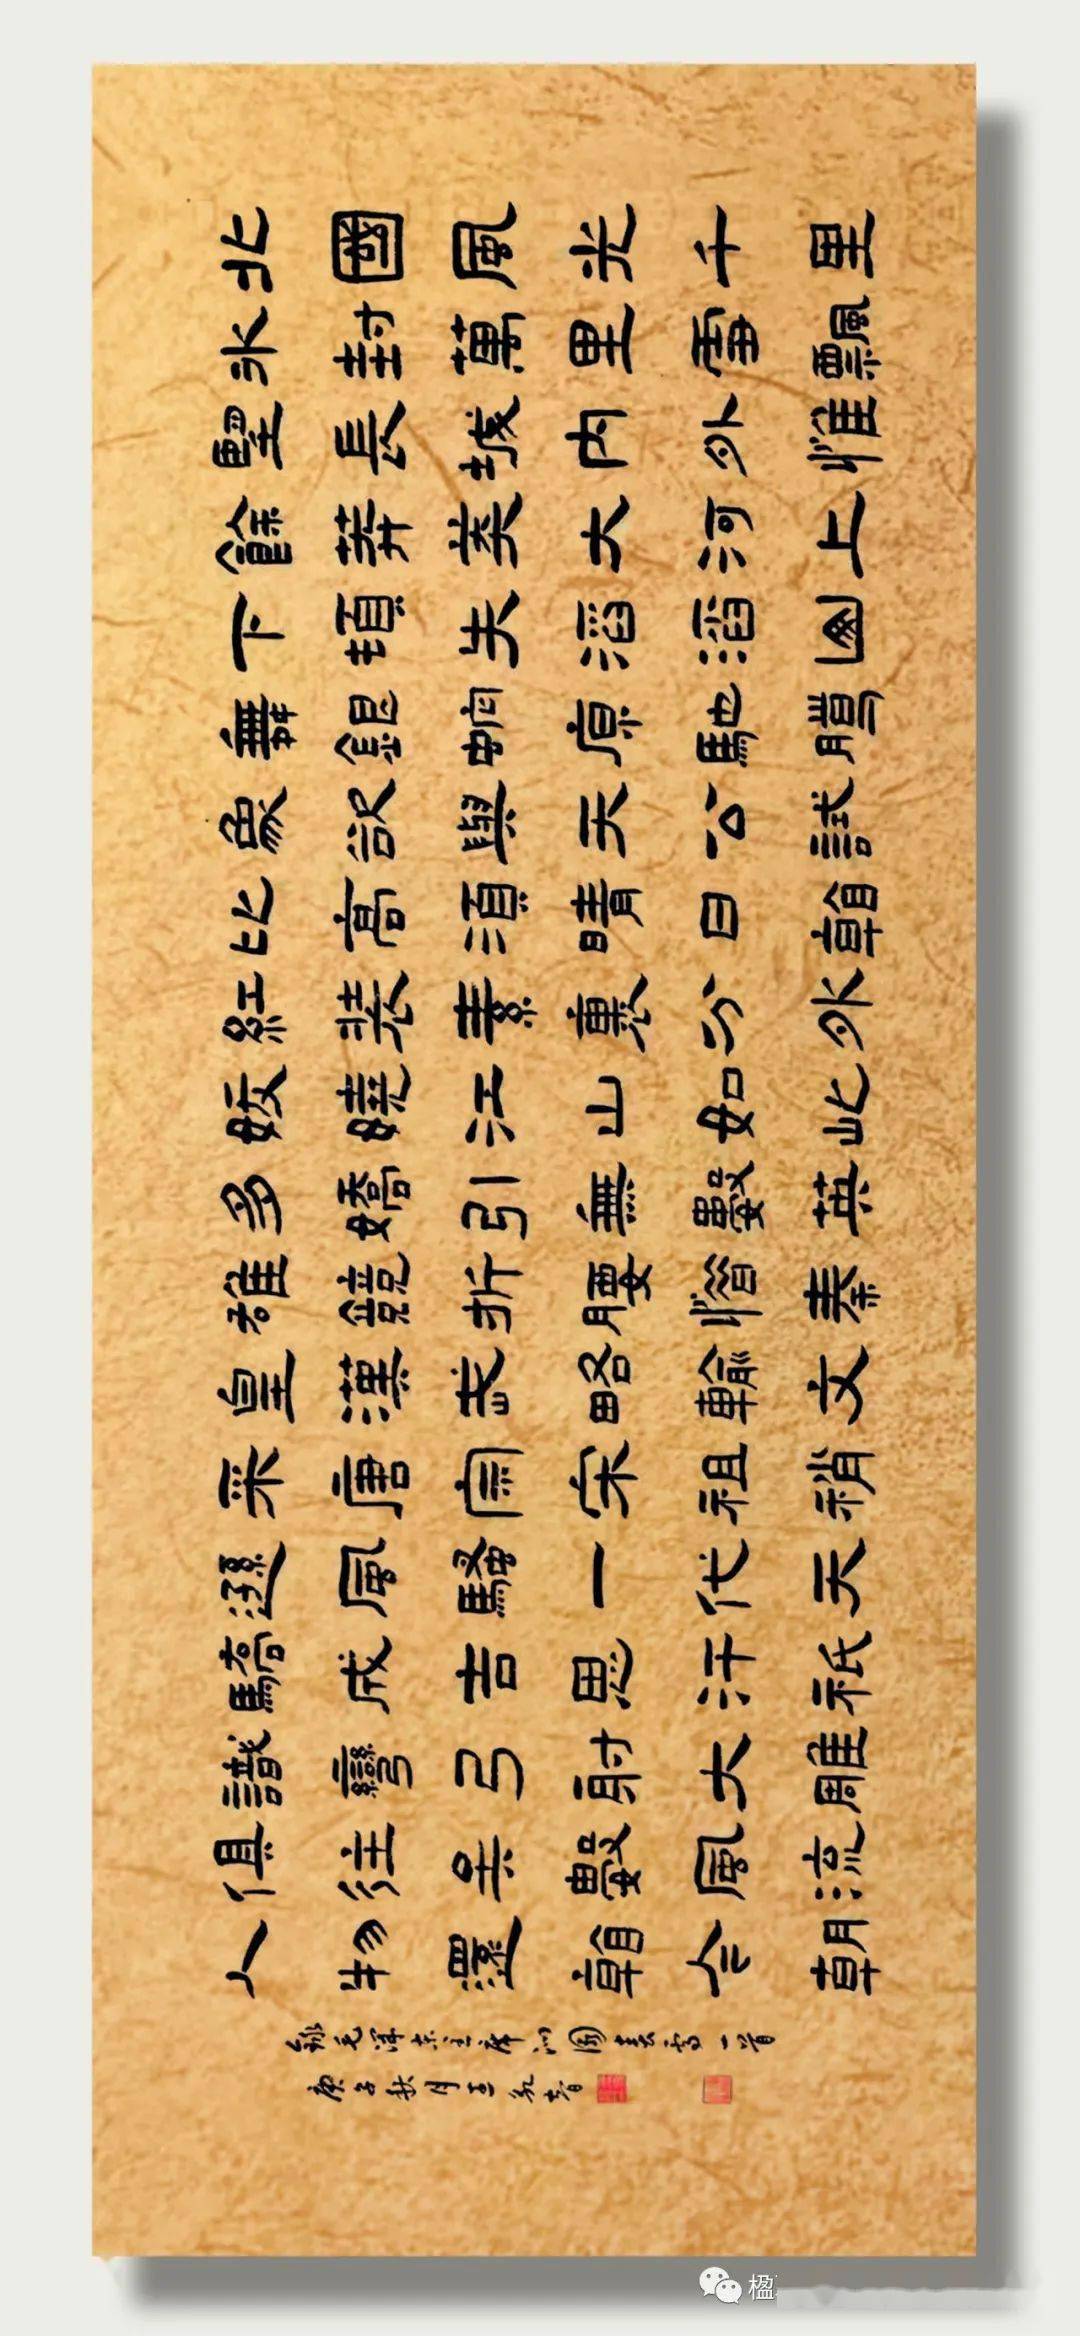 北國風光千里
冰封萬里雪飄
望長城內外惟
餘莽莽大河上
下頓失滔滔山
舞銀蛇原馳臘
象欲與天公試
比高須晴日看
紅裝素裹分外
妖嬈江山如此
多嬌引無數英
雄競折腰惜秦
皇漢武略輸文
采唐宗宋祖稍
遜風騷一代天
驕成吉思汗祇
識彎弓射大雕
俱往矣數風流
人物還看今朝
錄毛澤東主席沁園春雪一首
庚子秋月
楹